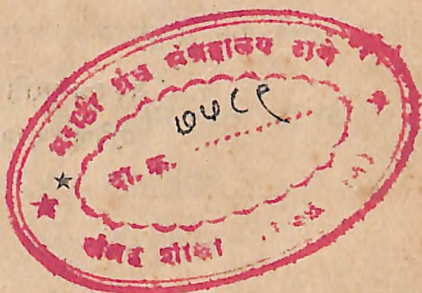 मराठी ग्रंथ संग्रहालय ठाणे
७७८९
दा. क्र.
शाखा